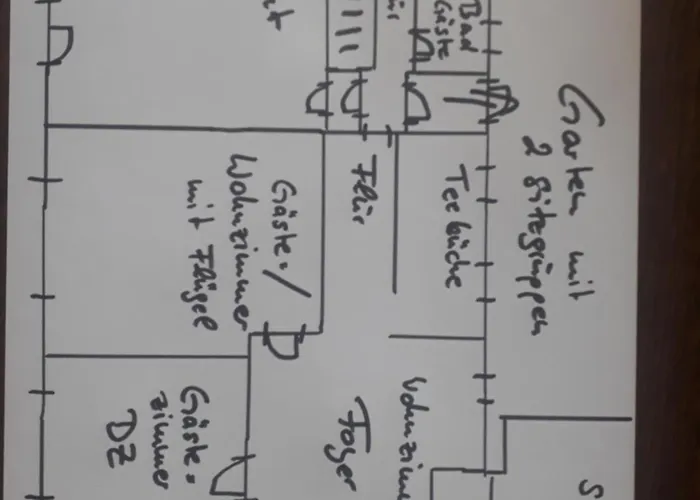 Garten mit
2 Sitzgruppen
Bad
Gäste
Teeküche
Flur
Gäste-/
Wohnzimmer
mit Flügel
Wohnzim
Foyer
Gäste-
zimmer
DZ
S